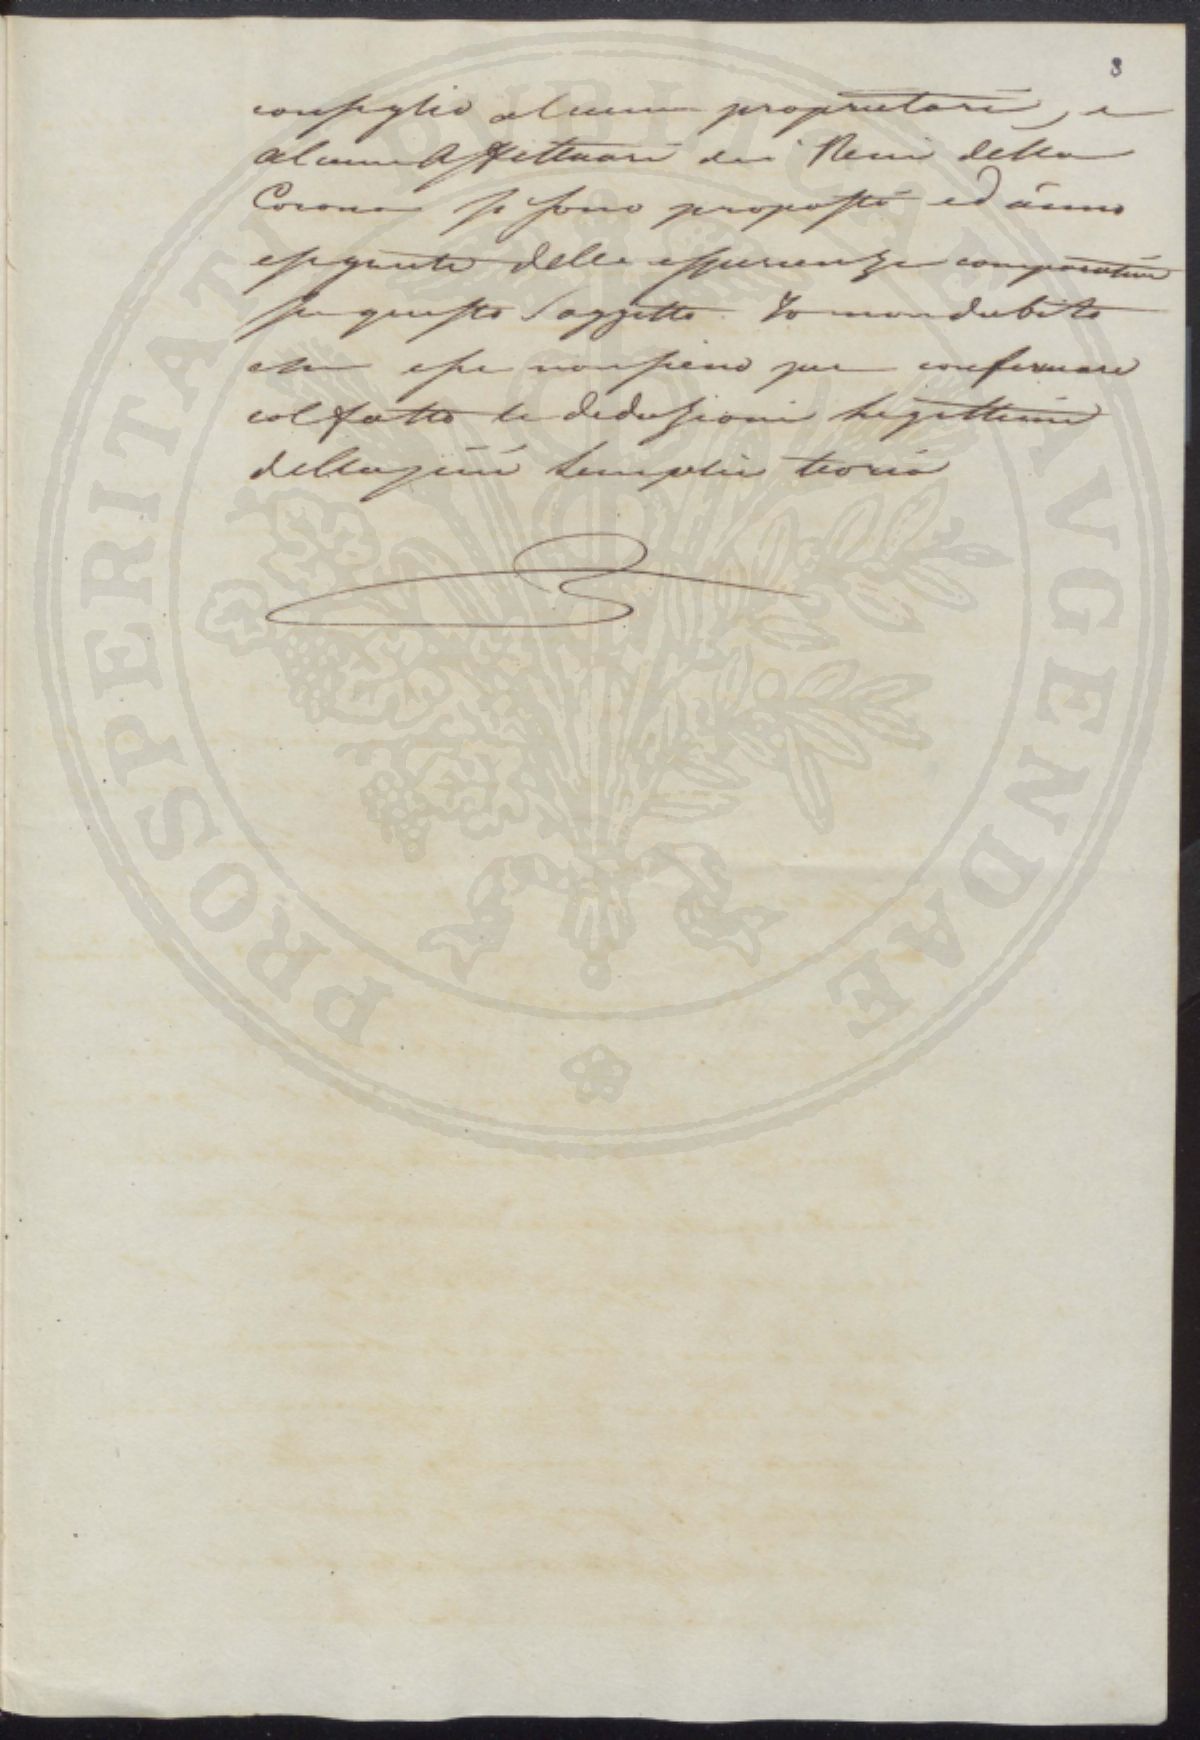 8
consiglio alcuni proprietarj, e
alcuni Affittuari dei Beni della
Corona si sono proposto ed ànno
eseguite delle esperienze comparative
su questo soggetto. Io non dubito
che esse non sieno per confermare
col fatto le deduzioni legittime
della più semplice teoria
PROSPERITATI PUBLICAE AVGENDAE